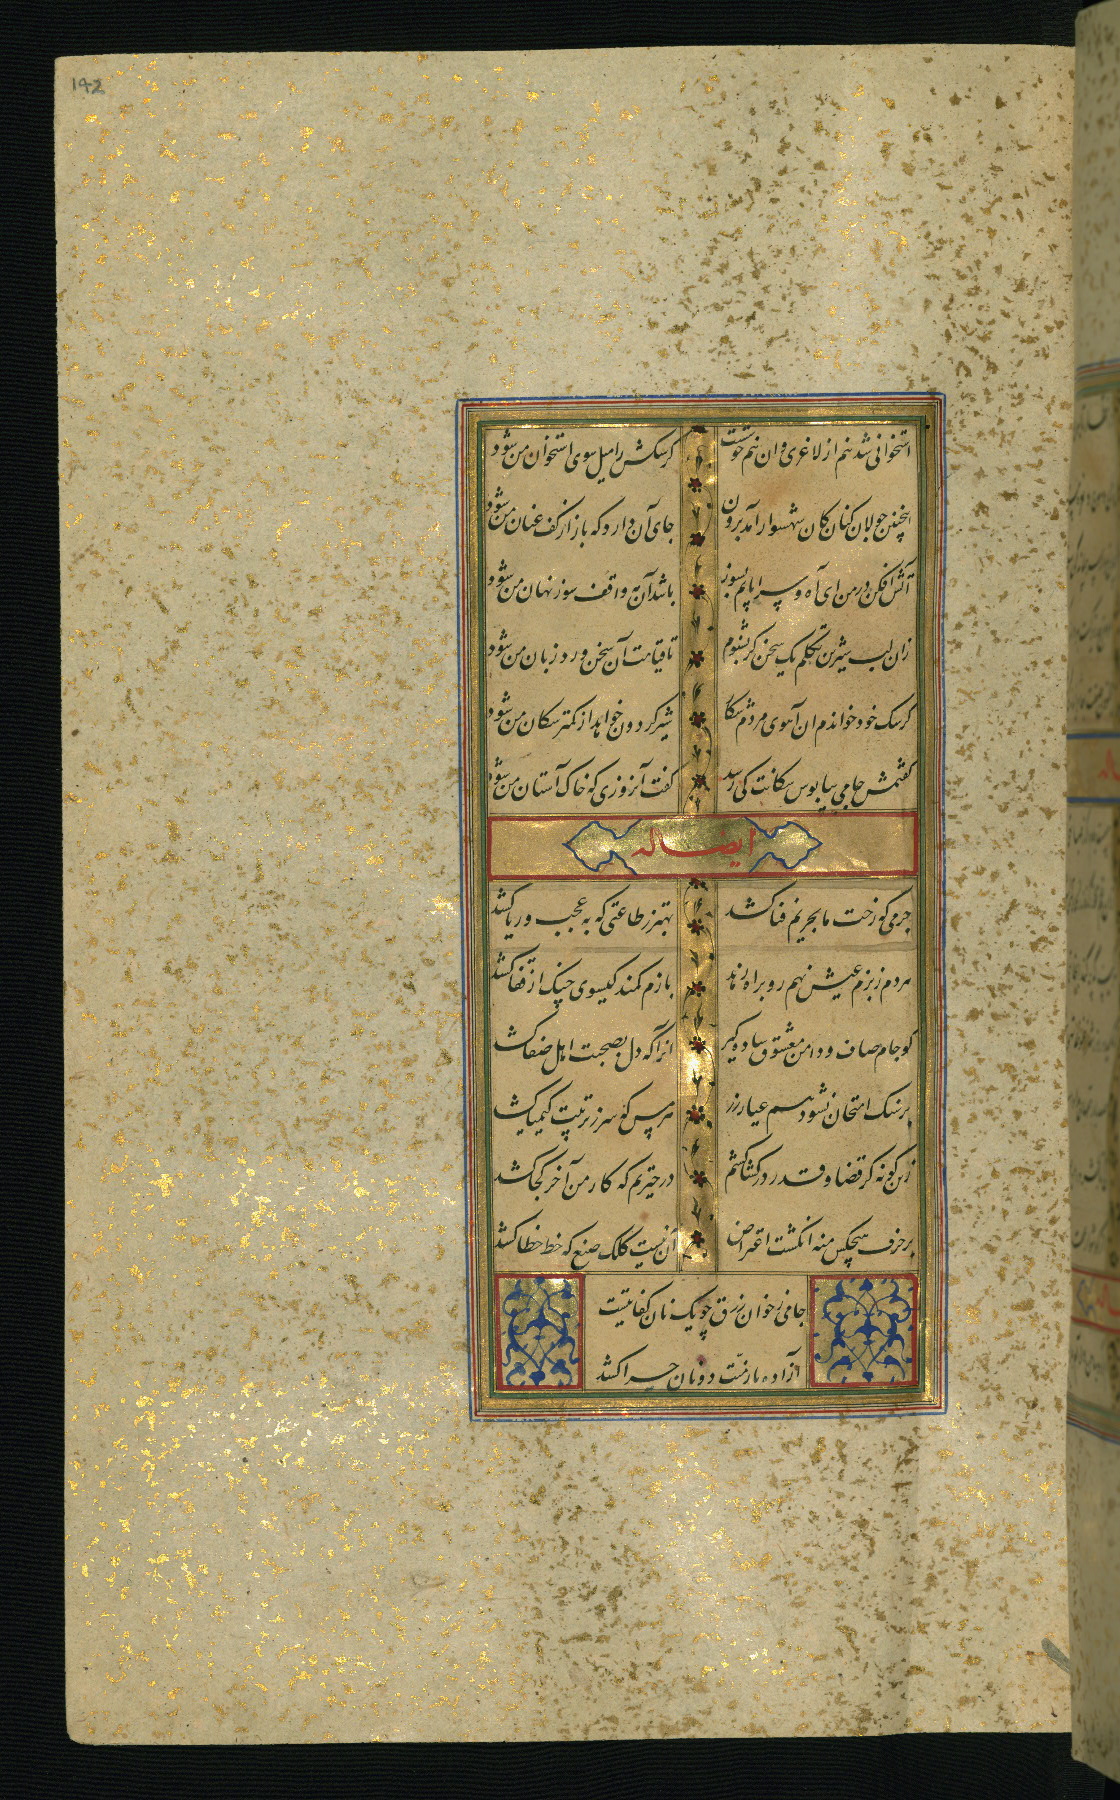 ۱۴۲
استخوانی شد تنم از لاغری وان هم خوشست
گر سگش را میل سوی استخوان من شود
اینچنین جولان کنان کان شهسوار آمد برون
جای آن دارد که باز از کف عنان من شود
آتش افکن در من ای آه و سراپایم بسوز
باشد آن مه واقف سوز نهان من شود
زان لب شیرین تکلم یک سخن گر بشنوم
تا قیامت آن سخن ورد زبان من شود
گر سگ خود خواندم ان آهوی مردم شکار
شیر گردون خواهد از کمتر سگان من شود
گفتمش جامی بپابوس سگانت کی رسد
گفت آنروزی که خاک آستان من شود
ایضا له
جرمی کو رخت ما بحریم فنا کشد
بهتر ز طاعتی که به عجب و ریا کشد
هر دم ز بزم عیش نهم رو براه زهد
بازم کمند گیسوی چنگ از قفا کشد
کو جام صاف و دامن معشوق ساده گیر
انرا که دل بصحبت اهل صفا کشد
بر سنگ امتحان نشود مس عیار زر
هر مس که سر ز تربیت کیمیا کشد
زین گونه کز قضا و قدر در کشاکشم
در حیرتم که کار من آخر کجا کشد
بر حرف هیچکس منه انگشت اعتراض
آن نیست کلک صنع که خط خطا کشد
جامی ز خوان رزق چو یک نان کفایتیست
آزاده بار منت دونان چرا کشد